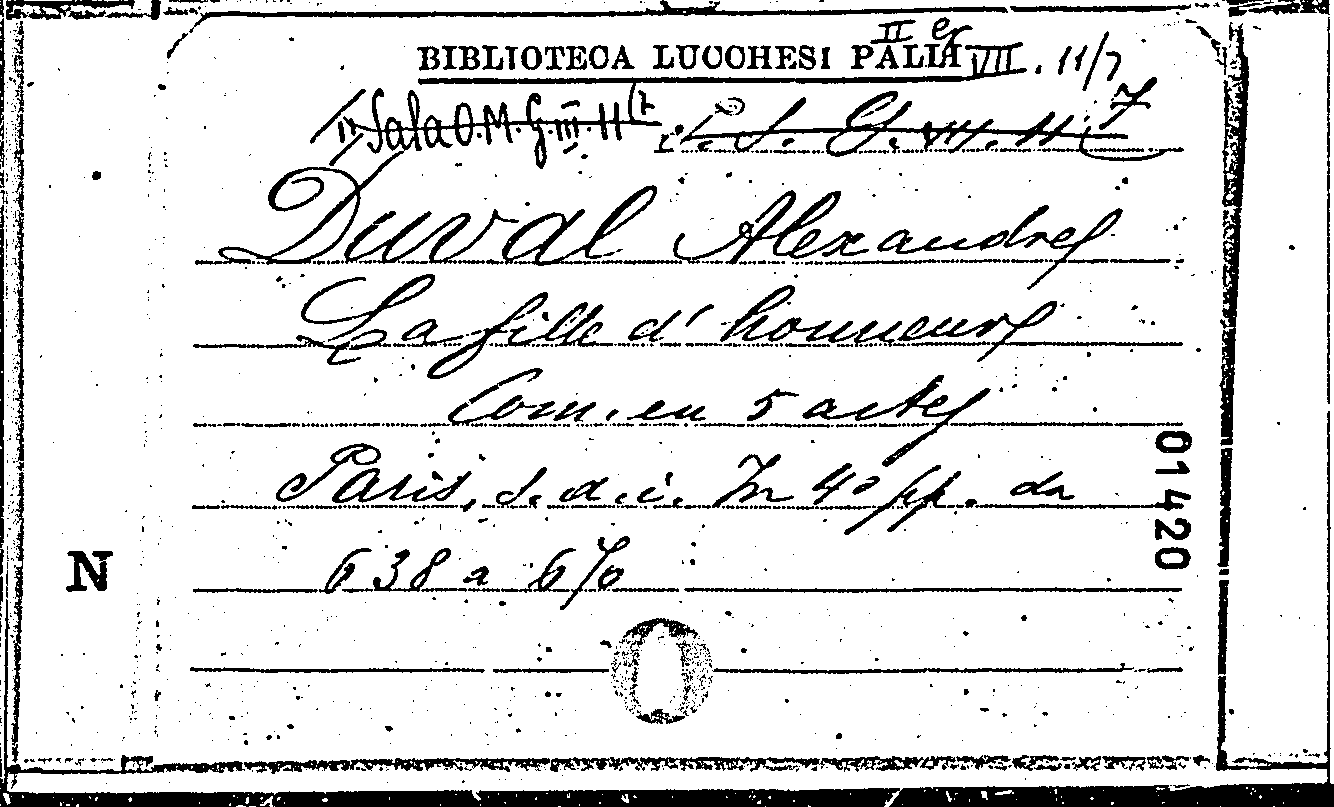 BIBLIOTECA LUCCHESI PALLI
II G VIII. 11/7
Sala O.M. G. III. 11/7
L. S. G. VII. 11 (7
Duval Alexandre
La fille d'honneur
Com. en 5 actes
Paris, s. d. i. In 4º pp. da
638 a 670
01420
N